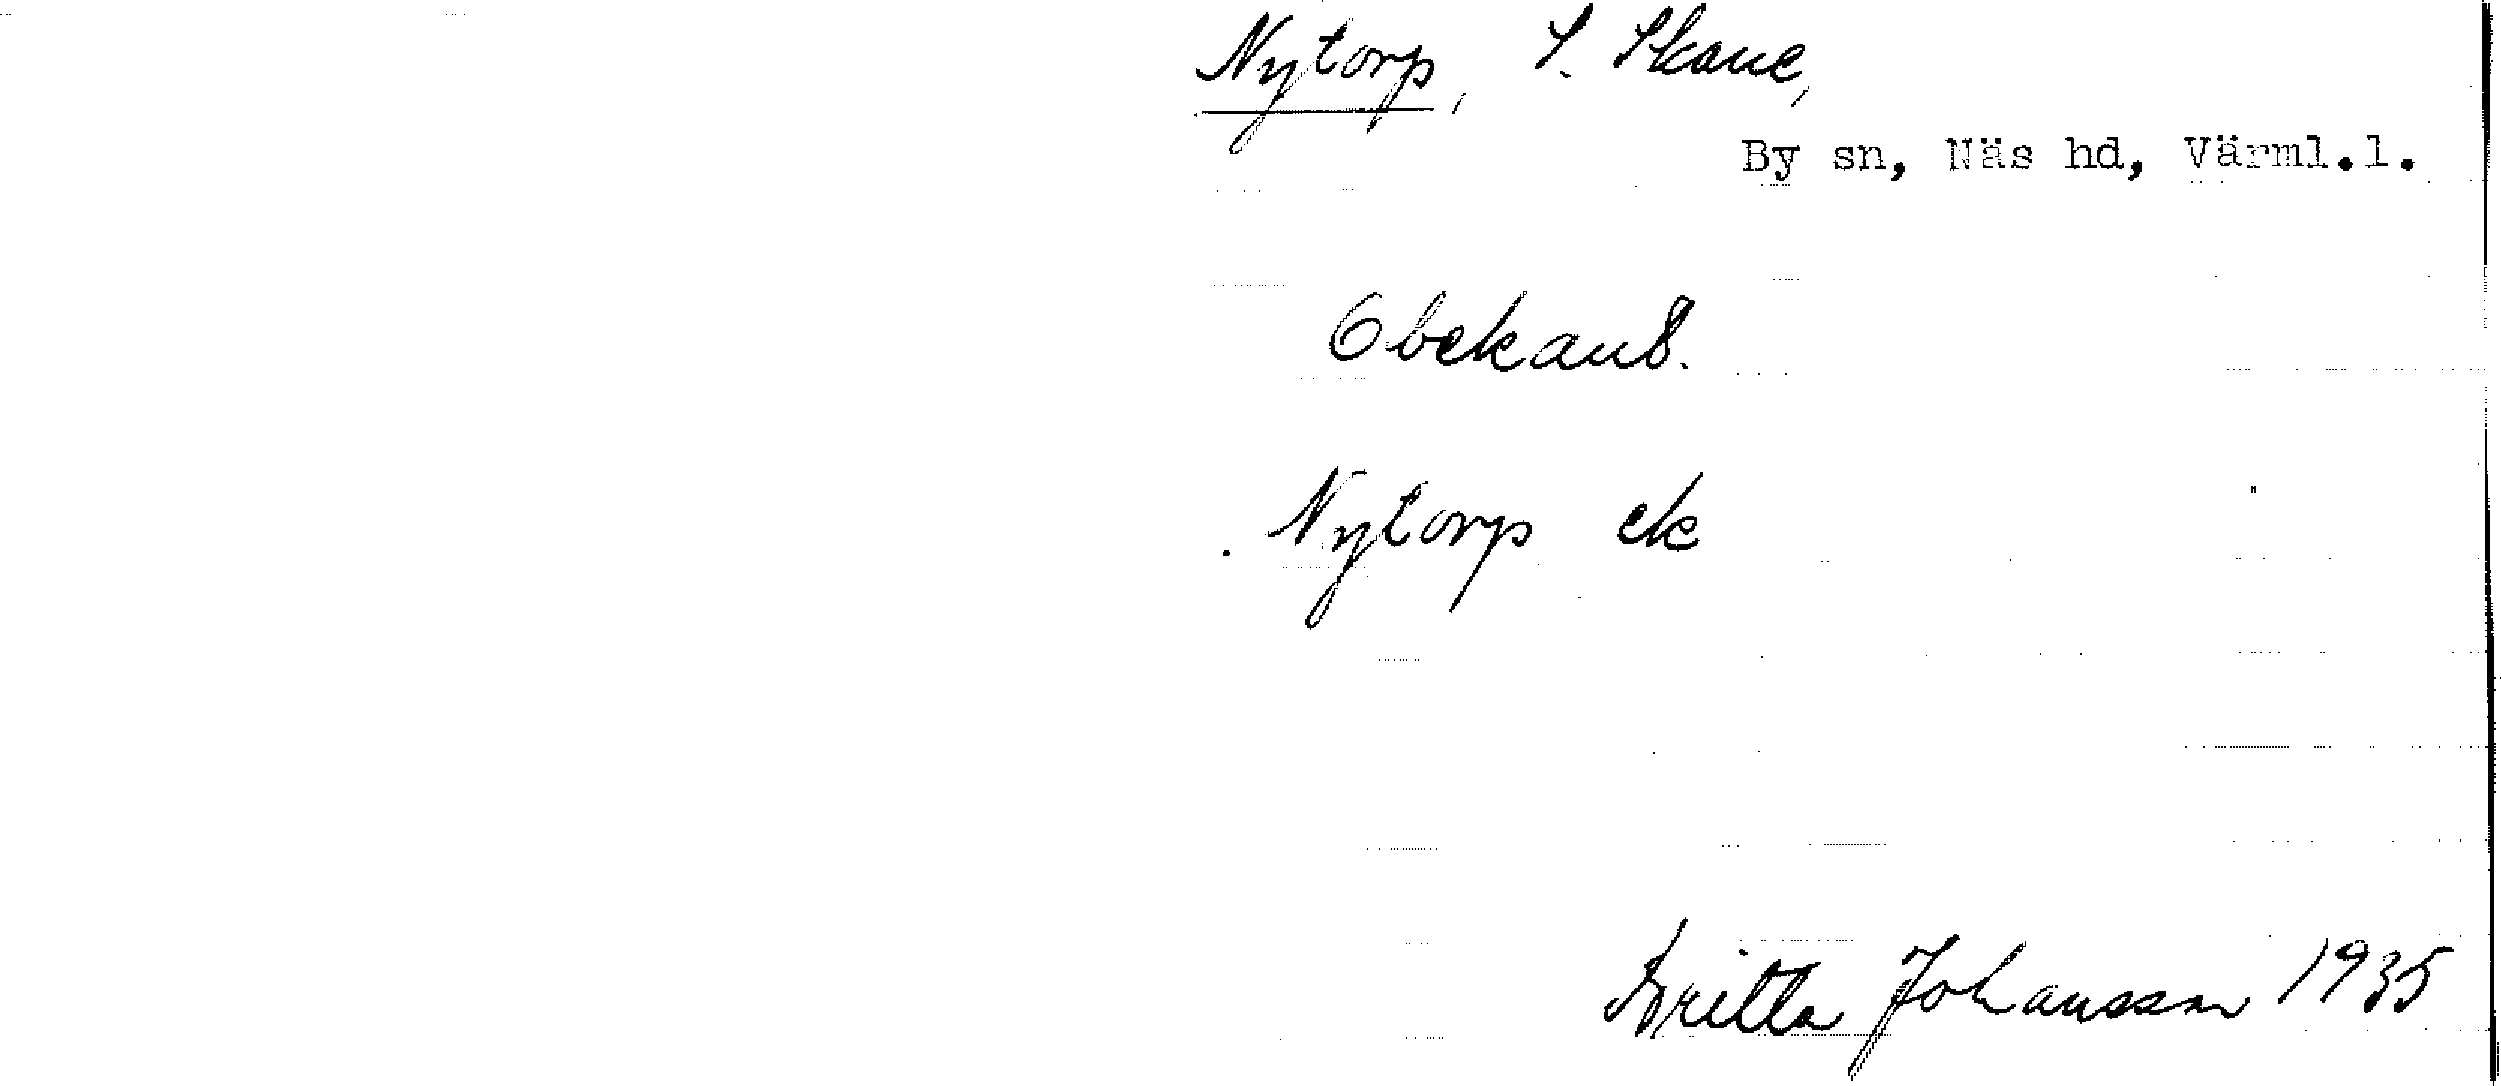 Nytorp, S. Skane,
By sn, Näs hd, Värml.l.
Obekant.
Nytorp ek
Britta Johansson 1935